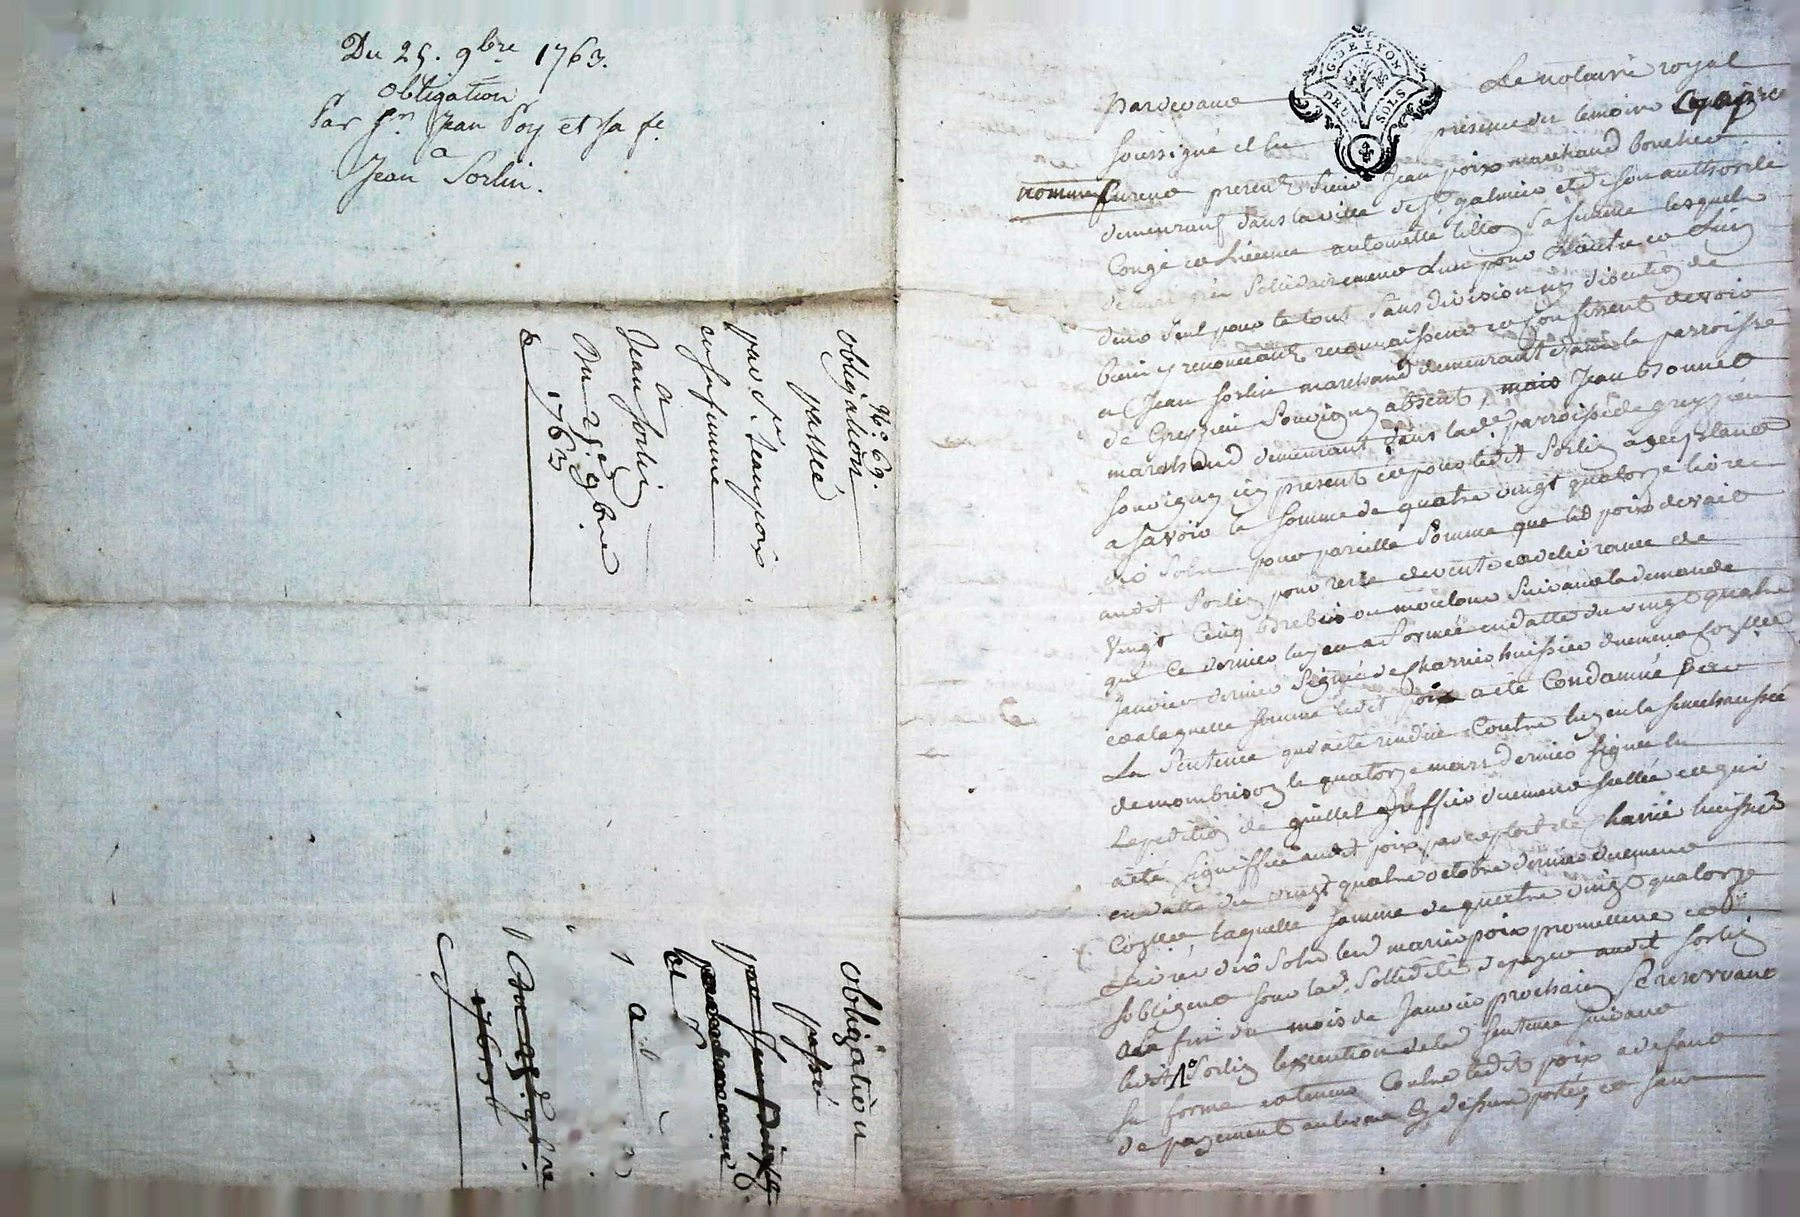 Du 25. 9bre 1763.
Obligation
Par Sr. Jean Poy et sa fe.
a
Jean Sorlin.
No. 69.
Obligation
passée
par Sr. Jean poix
et sa femme
a
Jean Sorlin
Du 25e. 9bre
1763
Obligation
passé
par
et
a
Du 25e. 9bre
1763
G. DE LYON
DEUX SOLS
Pardevant Le notaire royal
soussigné et en presence des temoins cy apres
nommés furent presents Sieur Jean poix marchand boucher
demeurant dans la ville de St galmier et de son authorité
Congé et Licence antoinette sa femme lesquels
de leur gré solidairement Lun pour Lautre et Lun
deux seul pour le tout sans division ny discution de
bien y renonceant reconnaissent et confessent devoir
a Jean Sorlin marchand demeurant dans la parroisse
de Grezieu Souvigny absent, mais Jean bonnet
marchand demeurant dans lade. parroisse de grezieu
souvigny icy present et pour ledit Sorlin acceptant
a savoir la somme de quatre vingt quatorze livres
dix sols pour pareille somme que led poix devait
audit Sorlin pour reste de vente et delivrance de
vingt cinq brebis ou moutons suivant la demande
que ce dernier luy en a formée en datte du vingt quatre
Janvier dernier signé de Charrier huissier duement
et a laquelle somme ledit poix a eté Condamné par
La Sentence qui a eté rendüe Contre luy en la senechaussée
de mombrison le quatorze mars dernier signée en
Lexpedition de quillet greffier duement scellée et qui
a eté signiffiée audit poix par exploit de Charrié huissier
en datte du vingt quatre octobre dernier duement
laquelle somme de quatre vingt quatorze
Livres dix sols led mariés poix promettent et
sobligent sous lad. Sollidité de payer audit Sorlin
a la fin du mois de Janvier prochain Se reservant
ledit Sorlin lexecution de lad sentence suivant
sa forme et teneur Contre ledit poix a defaut
de payement au terme cy dessus porté, et sans